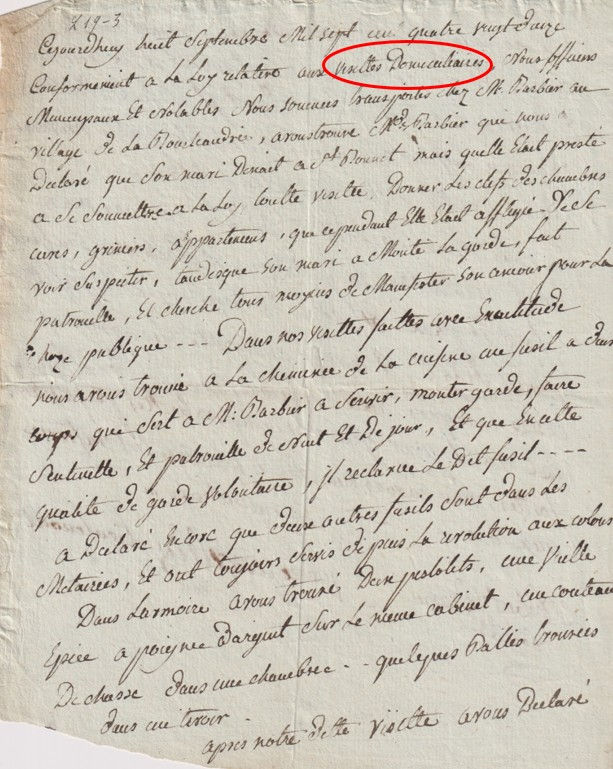 L 19-3
Cejourdhuy huit Septembre Mil sept cent quatre vingt douze
Conformement a La Loy relative aux visittes Domiciliaires, Nous officiers
Municipaux Et Notables Nous sommes transportés chez M. Barbier au
village de La avons trouvé Mde Barbier qui nous a
Declaré que Son mari Denait a St Bonnet mais quelle Etait preste
a Se Soumettre a La Loy toutte visitte, Donner Les clefs des chambres
caves, greniers, appartemens, que cependant Elle Etait affligée De Se
voir Suspecter, tandisque Son mari a Monté La garde, fait
patrouille, Et cherche tous moyens de Manifester Son amour pour La
chose publique --- Dans nos visittes faittes avec Exactitude
nous avons trouvé a La cheminée de La cuisine un fusil a deux
coups qui Sert a M. Barbier a Servir, monter garde, faire
Sentinelle, Et patrouille de Nuit Et De jour, Et que En cette
qualité de garde volontaire, il reclame Le Dit fusil ----
a Declaré Encore que deux autres fusils Sont dans Les
Metairies, Et ont toujours Servis depuis La revolution aux colons
Dans Larmoire avons trouvé Deux pistolets, une vieille
Epée a poignée Dargent Sur Le meme cabinet, un couteau
De chasse dans une chambre -- quelques Balles trouvées
dans un tiroir.
apres notre ditte visitte avons Declaré